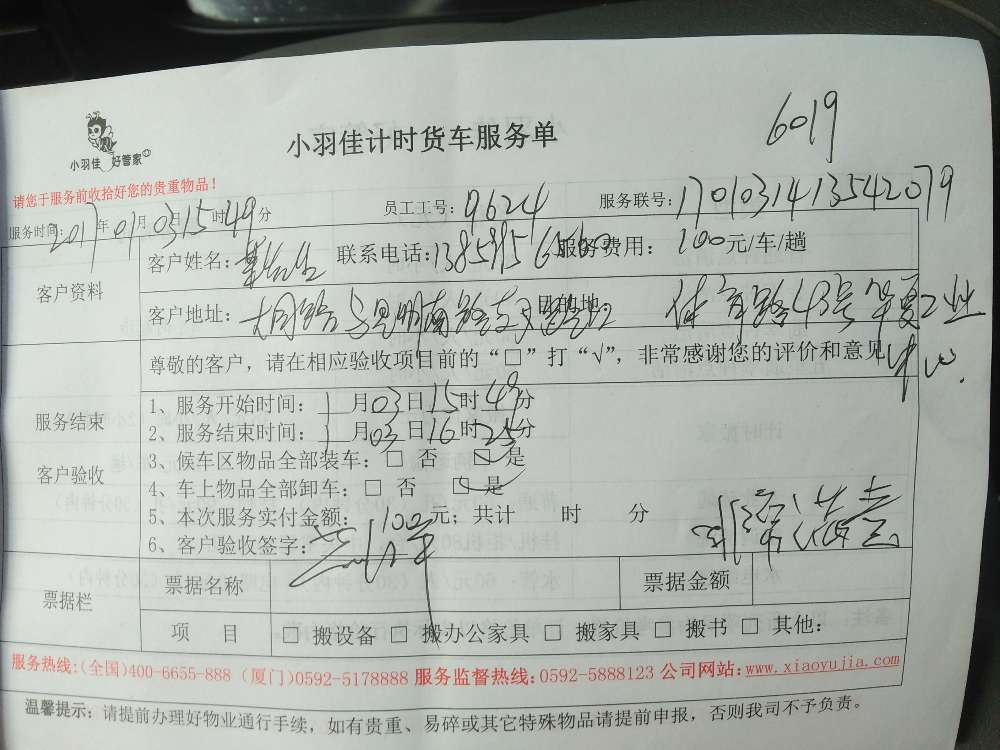 6019
小羽佳 好管家
小羽佳计时货车服务单
请您于服务前收拾好您的贵重物品！
服务时间: 2017年01月03日15时49分 员工工号: 9624 服务联号: 170103141354 2079
客户资料
客户姓名: 联系电话: 服务费用: 100元/车/趟
客户地址: 目的地 体育路43号华夏工业中心.
尊敬的客户，请在相应验收项目前的“□”打“√”，非常感谢您的评价和意见
服务结束
客户验收
1、服务开始时间: 1月03日15时49分
2、服务结束时间: 1月03日16时25分
3、候车区物品全部装车: □ 否 □ 是
4、车上物品全部卸车: □ 否 □ 是
5、本次服务实付金额: 100元; 共计 时 分
6、客户验收签字:
票据栏
票据名称 票据金额
项 目 □ 搬设备 □ 搬办公家具 □ 搬家具 □ 搬书 □ 其他:
服务热线:(全国)400-6655-888 (厦门)0592-5178888 服务监督热线:0592-5888123 公司网站:www.xiaoyujia.com
温馨提示: 请提前办理好物业通行手续，如有贵重、易碎或其它特殊物品请提前申报，否则我司不予负责。